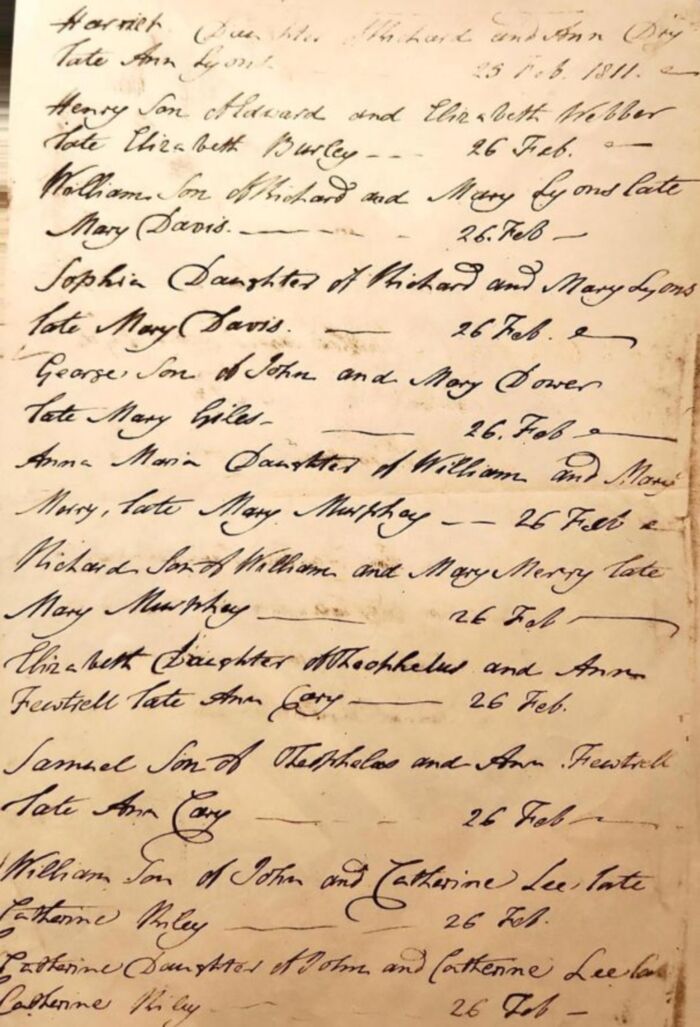 Harriet Daughter of Richard and Ann Dry
late Ann Lyons 25 Feb. 1811.
Henry Son of Edward and Elizabeth Webber
late Elizabeth Burley - - - 26 Feb.
William Son of Richard and Mary Lyons late
Mary Davis. 26. Feb -
Sophia Daughter of Richard and Mary Lyons
late Mary Davis. - 26 Feb.
George Son of John and Mary Dower
late Mary Giles - 26. Feb
Anna Maria Daughter of William and Mary
Merry, late Mary Murphey - - 26 Feb
Richard Son of William and Mary Merry late
Mary Murphey - 26 Feb
Elizabeth Daughter of Theophelus and Ann
Fewtrell late Ann Cary - 26 Feb.
Samuel Son of Theophelus and Ann Fewtrell
late Ann Cary - 26 Feb -
William Son of John and Catherine Lee late
Catherine Riley - 26 Feb.
Catherine Daughter of John and Catherine Lee
Catherine Riley - 26 Feb -